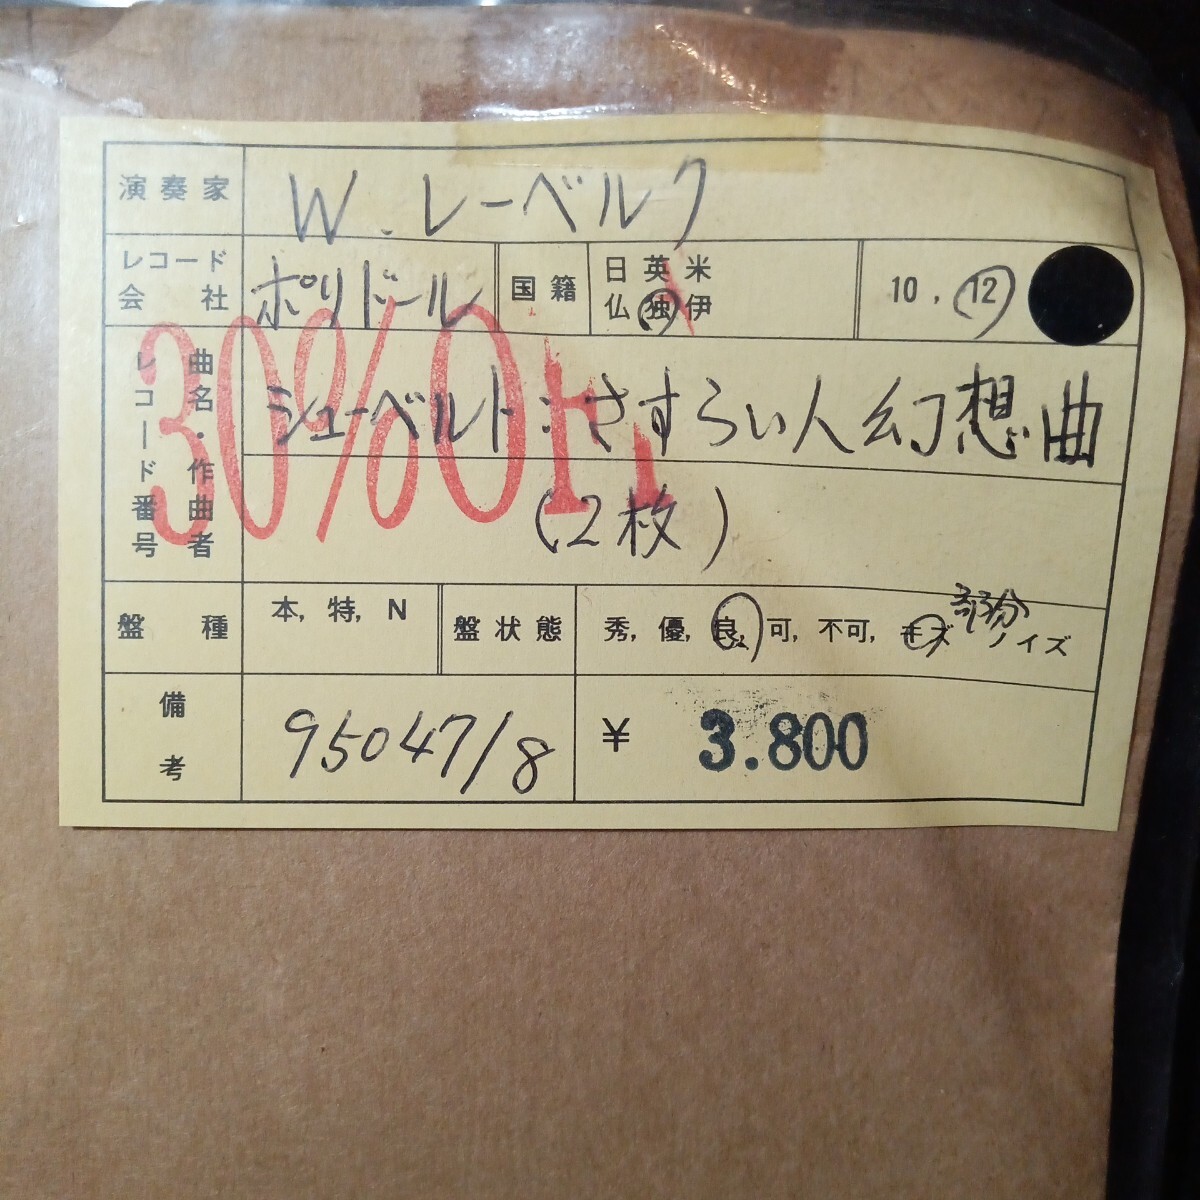 演奏家 W.レーベルク
レコード会社 ポリドール 国籍 日 英 米 仏 独 伊 10, 12
30%OFF
曲名・作曲者 レコード番号 シューベルト:さすらい人幻想曲
(2枚)
盤種 本, 特, N 盤状態 秀, 優, 良, 可, 不可, キズ 部分 ノイズ
備考 95047/8 ¥ 3.800